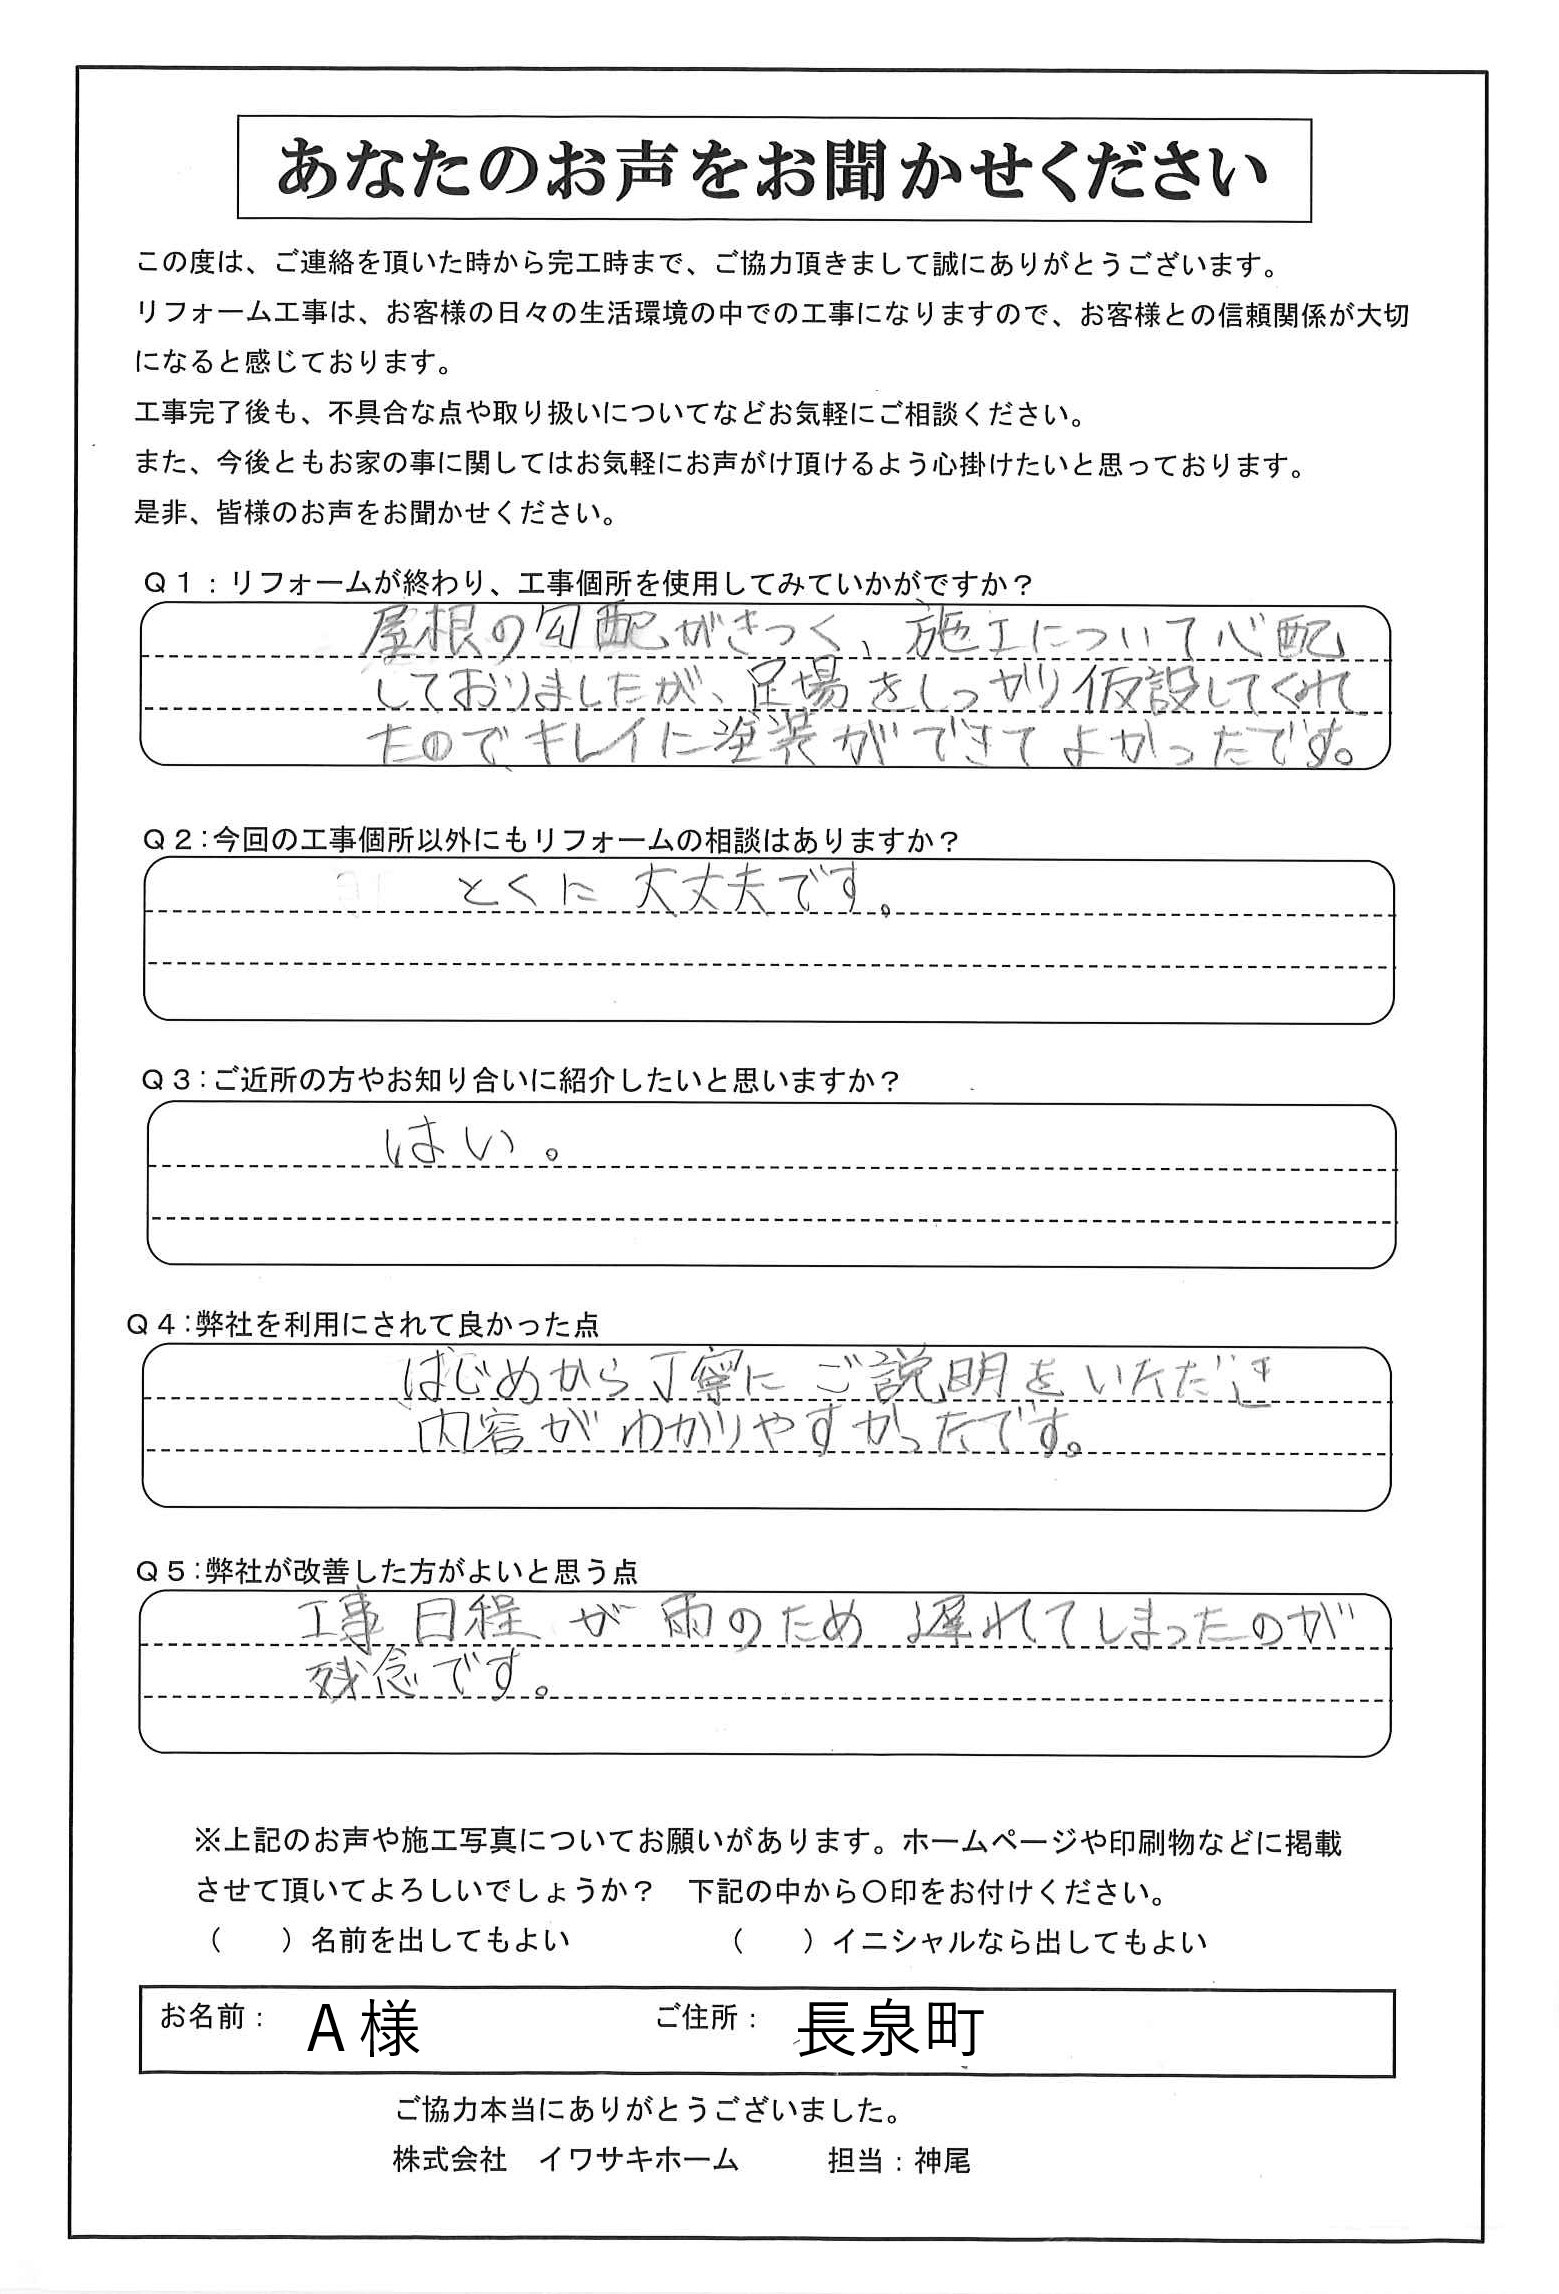 あなたのお声をお聞かせください
この度は、ご連絡を頂いた時から完工時まで、ご協力頂きまして誠にありがとうございます。
リフォーム工事は、お客様の日々の生活環境の中での工事になりますので、お客様との信頼関係が大切
になると感じております。
工事完了後も、不具合な点や取り扱いについてなどお気軽にご相談ください。
また、今後ともお家の事に関してはお気軽にお声がけ頂けるよう心掛けたいと思っております。
是非、皆様のお声をお聞かせください。
Q1：リフォームが終わり、工事個所を使用してみていかがですか？
屋根の勾配がきつく、施工について心配
しておりましたが、足場をしっかり仮設してくれ
たのでキレイに塗装ができてよかったです。
Q2：今回の工事個所以外にもリフォームの相談はありますか？
とくに 大丈夫です。
Q3：ご近所の方やお知り合いに紹介したいと思いますか？
はい。
Q4：弊社を利用にされて良かった点
はじめから丁寧に ご説明をいただき
内容がわかりやすかったです。
Q5：弊社が改善した方がよいと思う点
工事日程が雨のため遅れてしまったのが
残念です。
※上記のお声や施工写真についてお願いがあります。ホームページや印刷物などに掲載
させて頂いてよろしいでしょうか？　下記の中から〇印をお付けください。
（　　）名前を出してもよい　　　　　（　　）イニシャルなら出してもよい
お名前： A様　　ご住所： 長泉町
ご協力本当にありがとうございました。
株式会社　イワサキホーム　　　担当：神尾